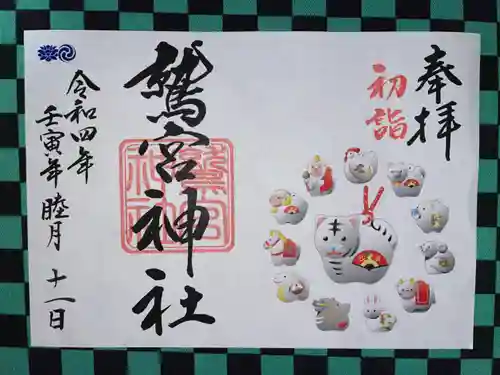 奉拝
初詣
鷲宮神社
令和四年
壬寅年 睦月 十一日